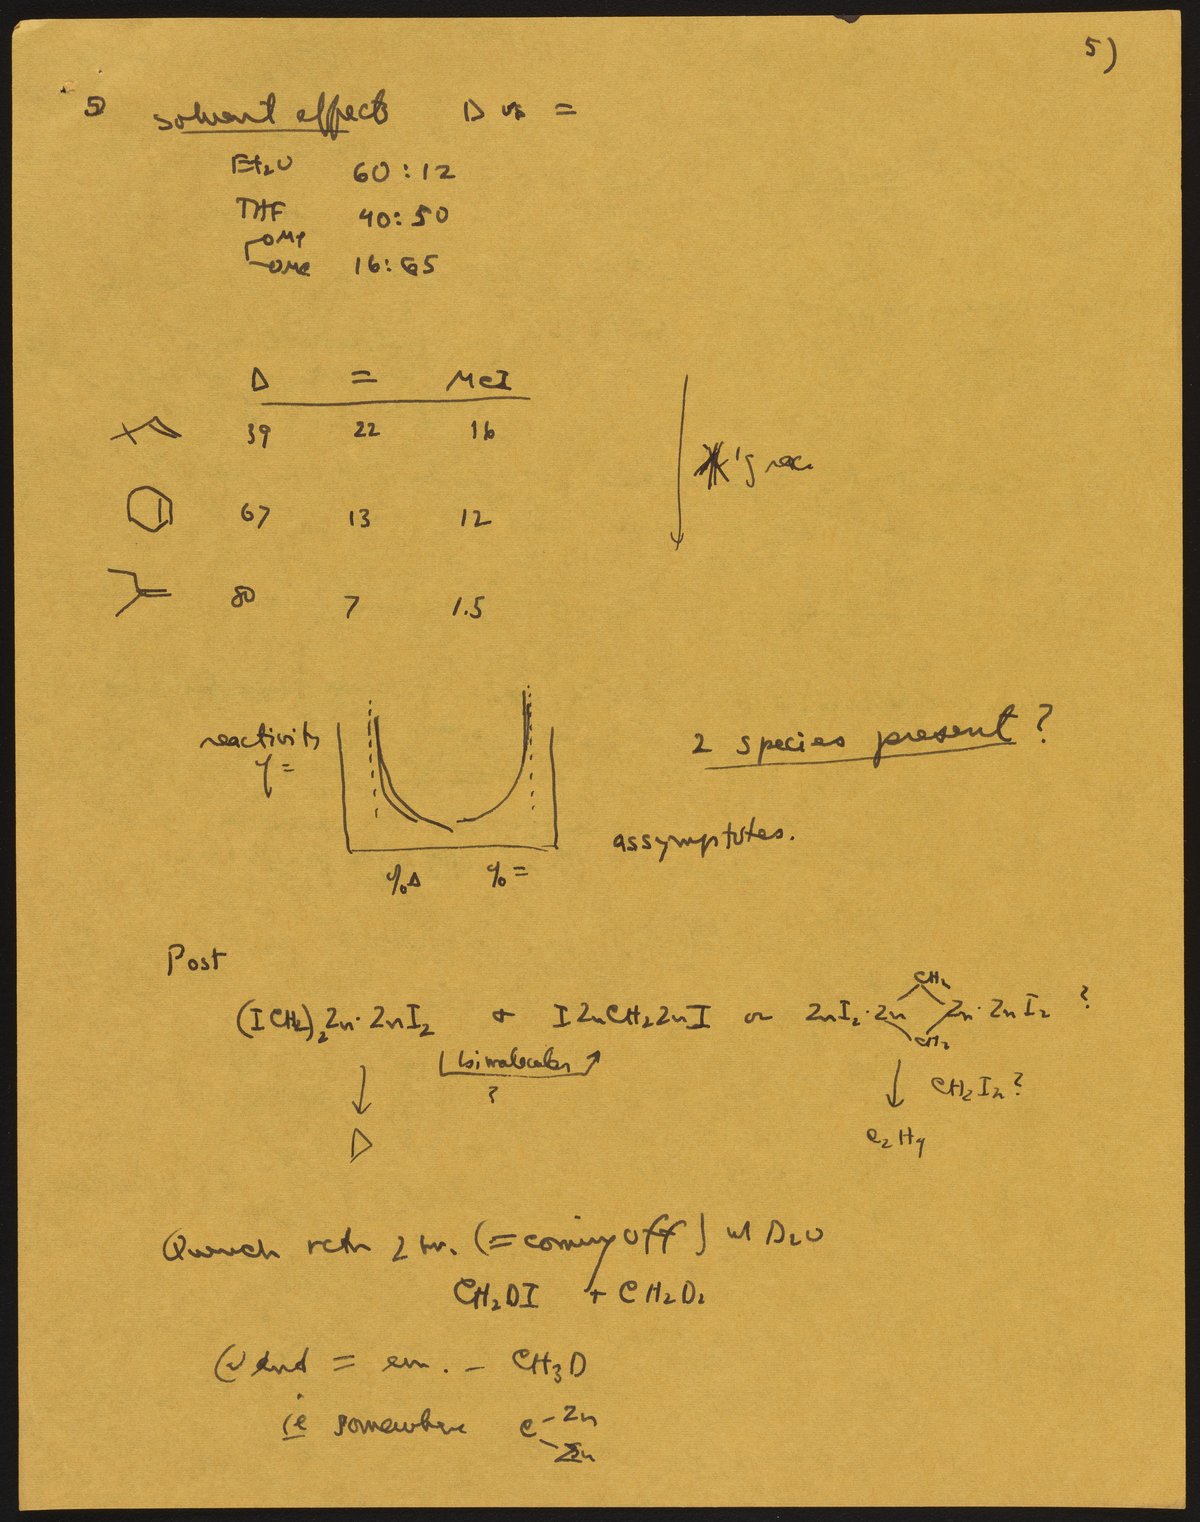 5)
5) solvent effects Δ vs =
Et2O 60:12
THF 40:50
OMe
OMe 16:65
Δ = MeI
39 22 16
67 13 12
80 7 1.5
'g rac
reactivity
γ =
%Δ %=
2 species present?
assymptotes.
Post
(ICH2)2Zn·ZnI2 + IZnCH2ZnI or ZnI2·Zn CH2 CH2 Zn·ZnI2 ?
bimolecular
?
CH2I2?
Δ C2H4
Quench rctn 2 hr. (= coming off) w/ D2O
CH2DI + CH2D2
@ end = em. – CH3D
ie somewhere C Zn
Zn